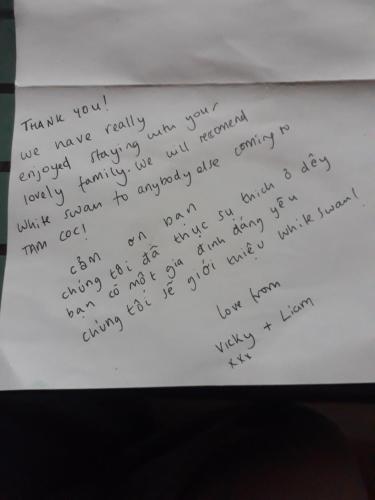 THANK YOU!
we have really
enjoyed staying with your
lovely family. We will recomend
white swan to anybody else coming to
TAM COC!
cảm ơn bạn
chúng tôi đã thục sụ thich ỏ đêy
bạn có một gia đình đáng yêu
chúng tôi sẽ giới thiệu white swan!
love from
Vicky + Liam
xxx